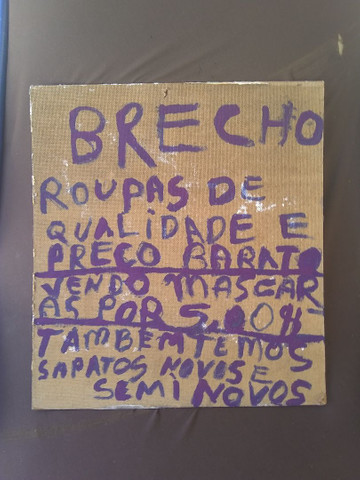 BRECHO
ROUPAS DE
QUALIDADE E
PRECO BARATO
VENDO MASCAR
AS POR 5,00$
TAMBEM TEMOS
SAPATOS NOVOS E
SEMI NOVOS